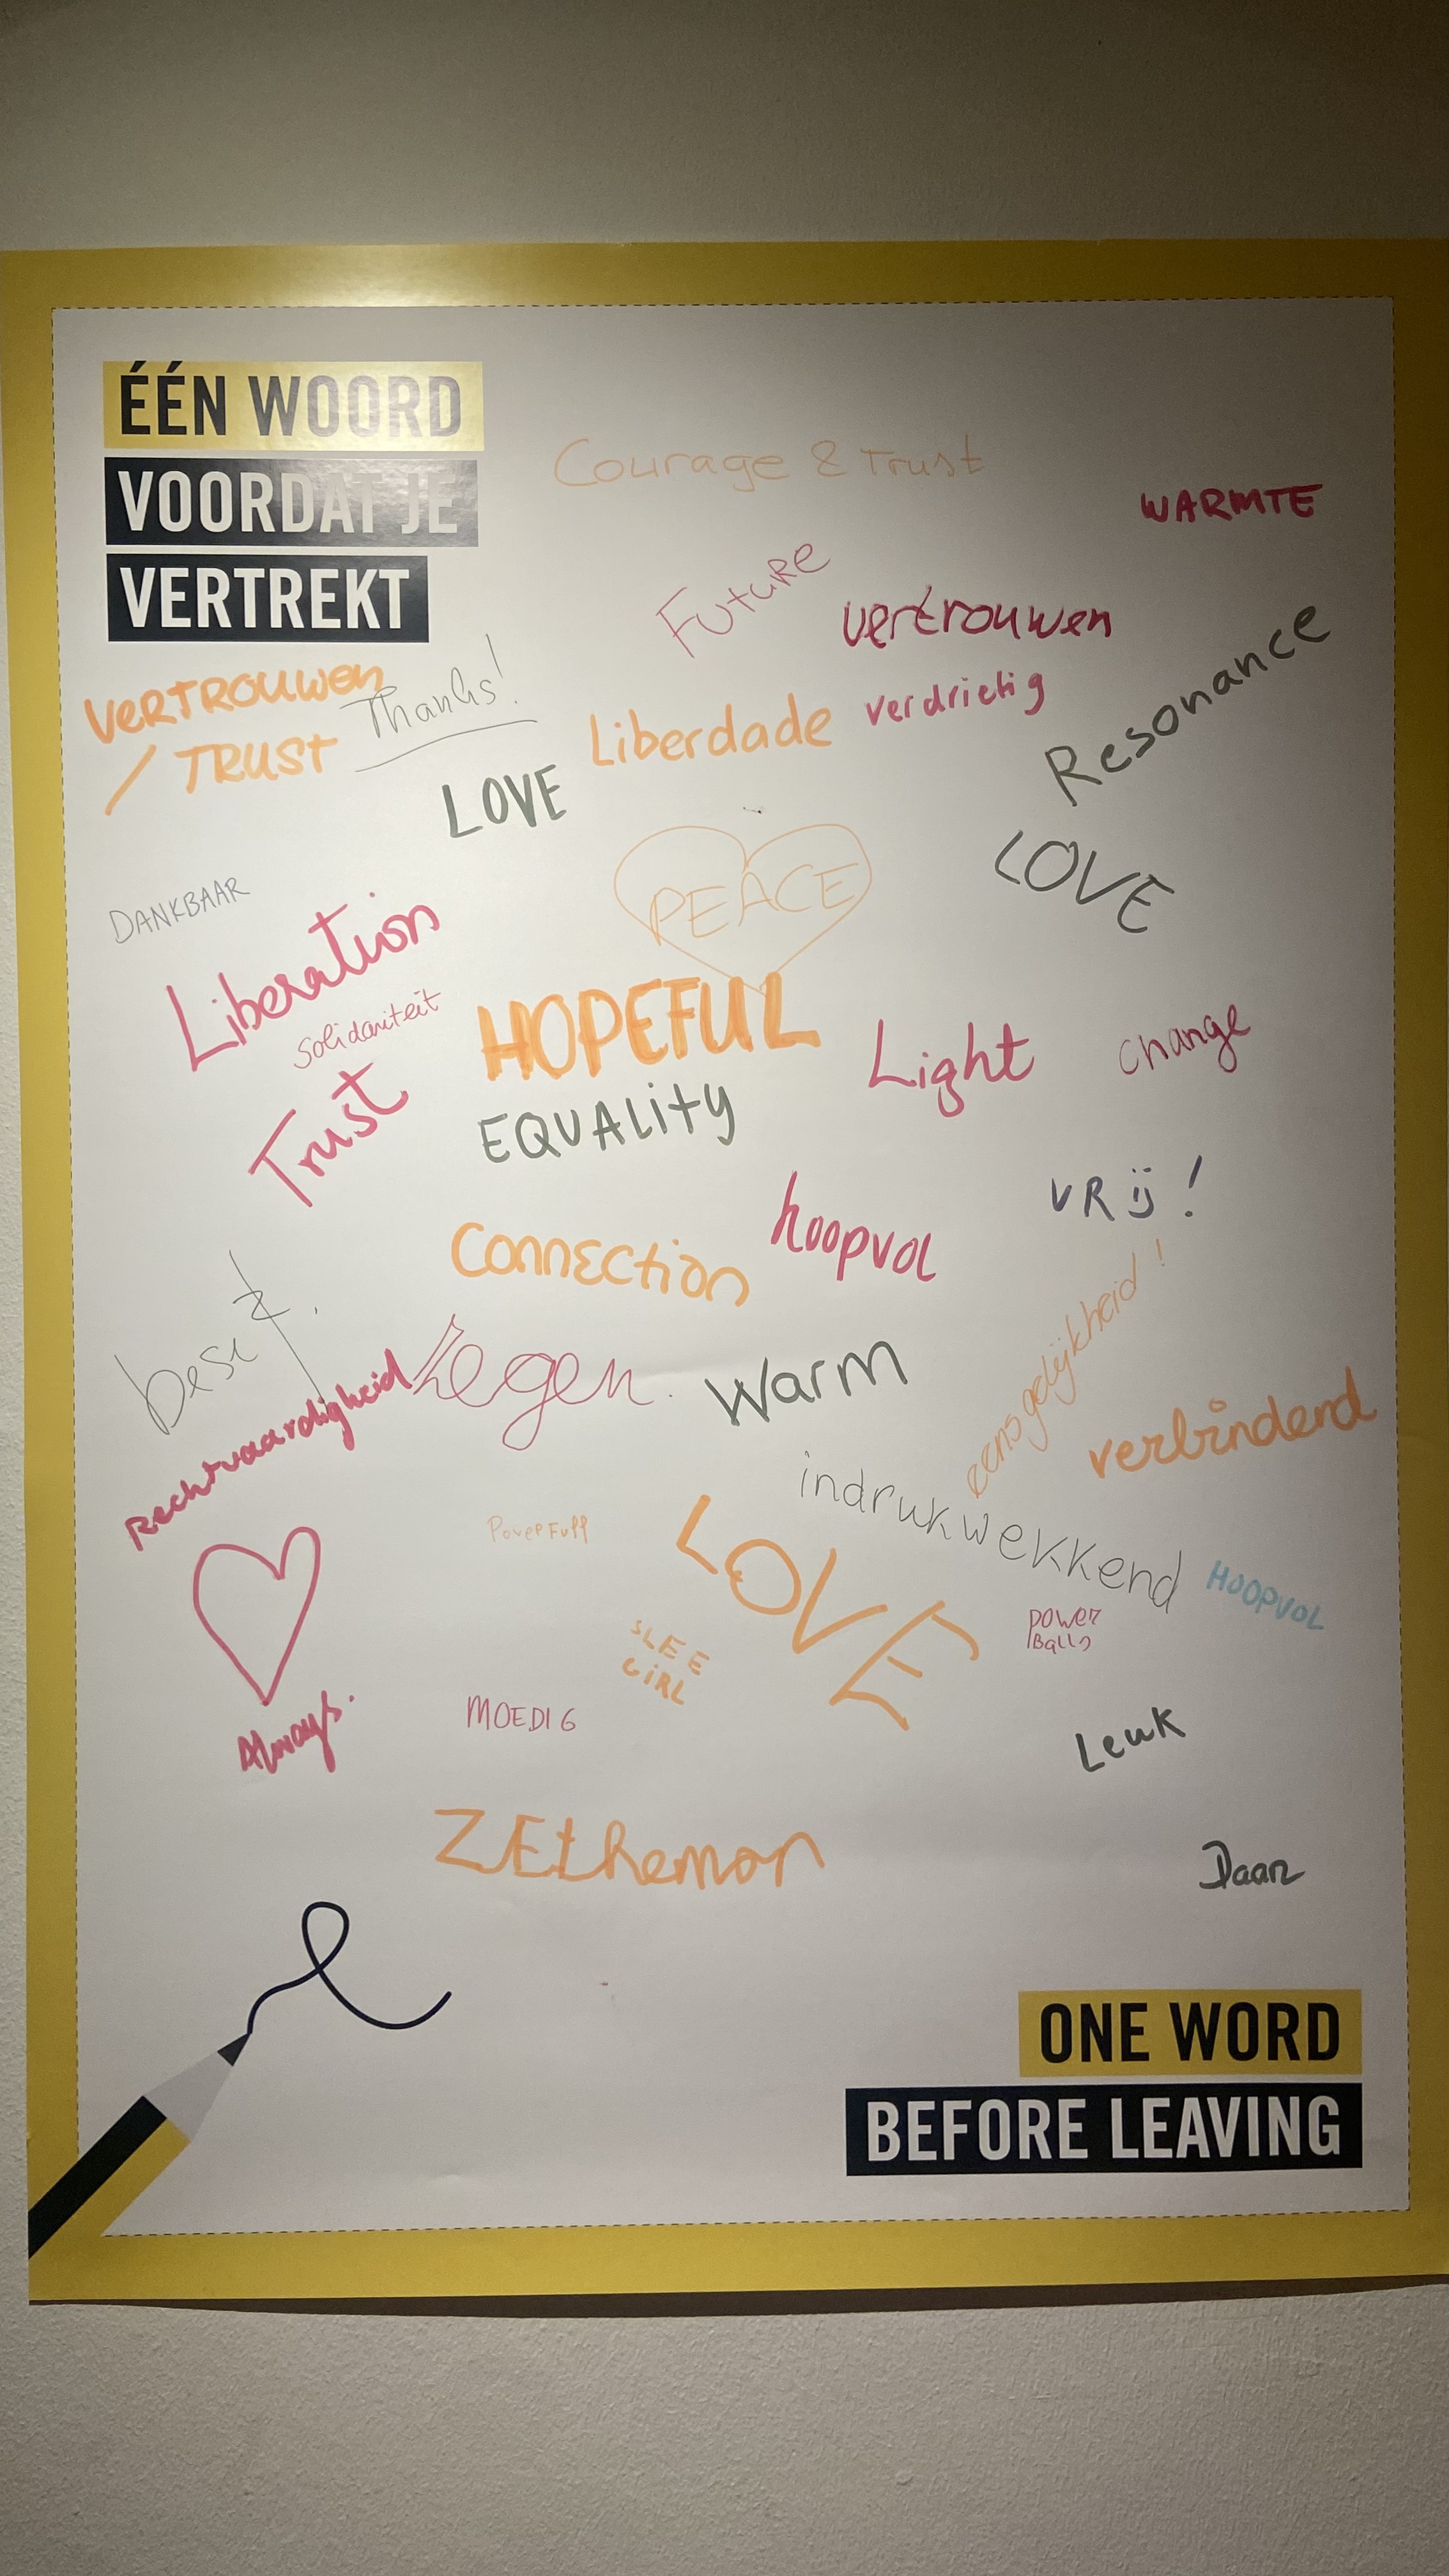 ÉÉN WOORD
VOORDAT JE
VERTREKT
Courage & Trust
WARMTE
Future
vertrouwen
VERTROUWEN
/ TRUST
Thanks!
Liberdade
verdrietig
Resonance
LOVE
PEACE
LOVE
DANKBAAR
Liberation
Solidariteit
HOPEFUL
Light
change
Trust
EQUALITY
VRij!
hoopvol
Connection
besef.
Rechtvaardigheid
Zegen.
Warm
eensgelijkheid!
verbindend
indrukwekkend
PoverFull
LOVE
HOOPVOL
power
Balls
SLEE
GiRL
MOEDIG
Always.
Leuk
ZEthemon
Daan
ONE WORD
BEFORE LEAVING